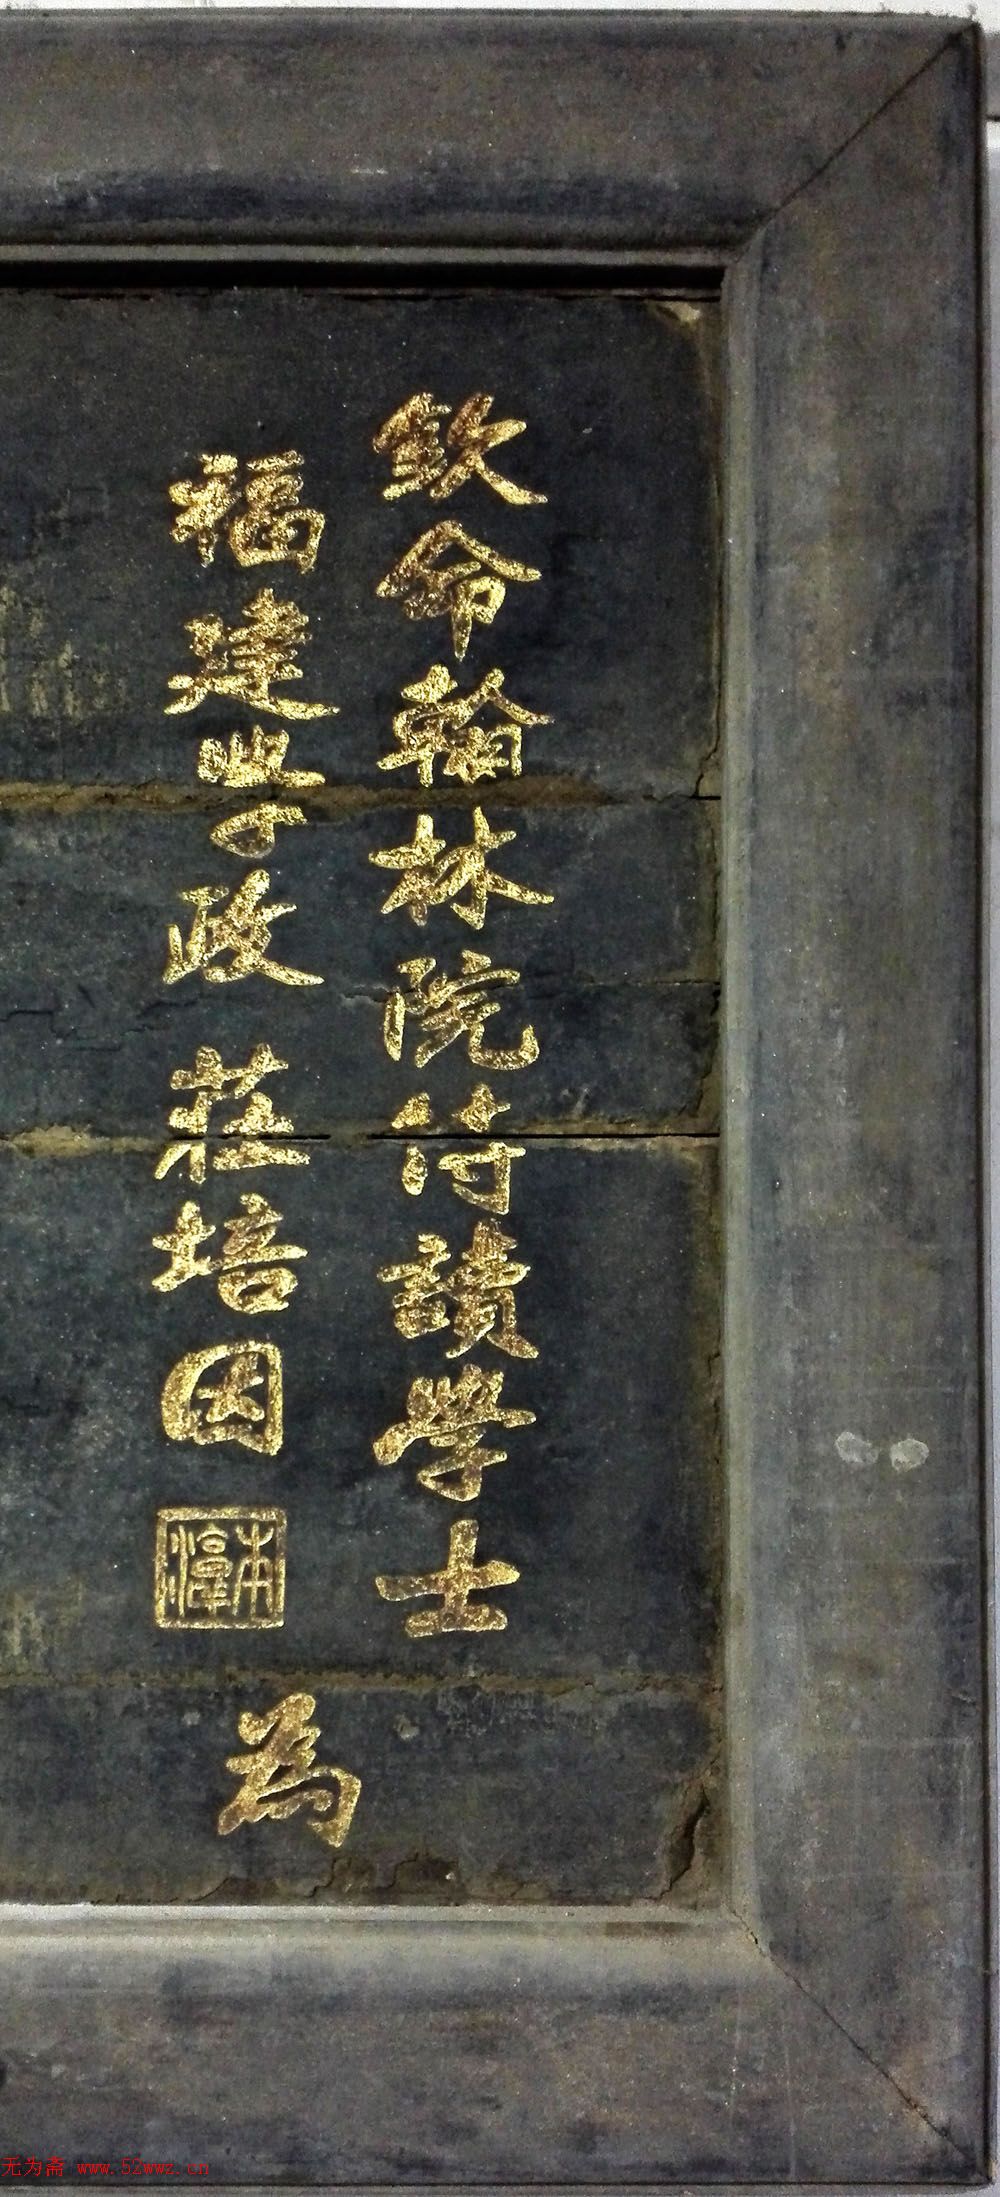 欽命翰林院侍讀學士
福建學政 莊培因
本淳
為
无为斋 www.52wwz.cn